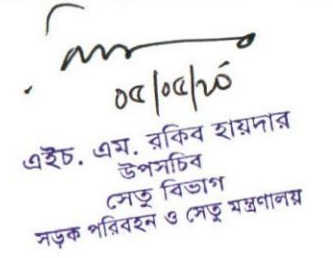 ০৫/০৫/২০
এইচ. এম. রকিব হায়দার
উপসচিব
সেতু বিভাগ
সড়ক পরিবহন ও সেতু মন্ত্রণালয়